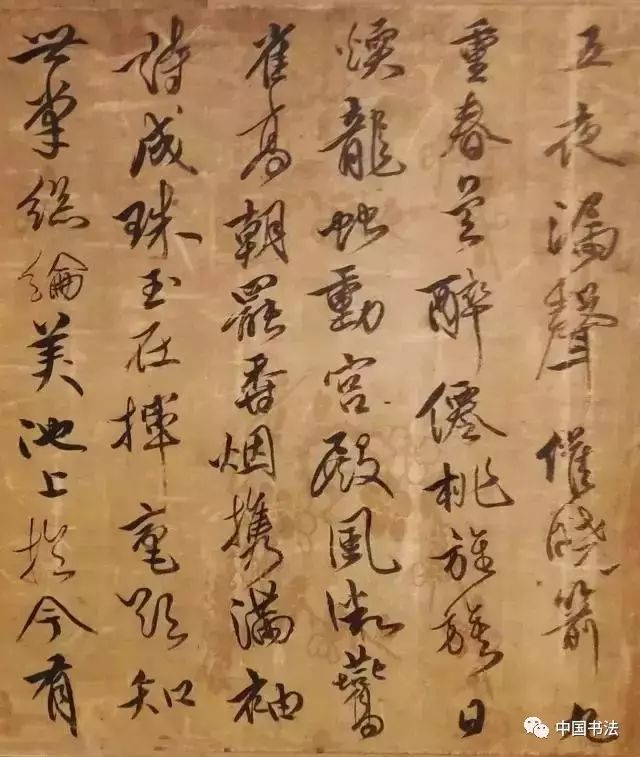 五夜漏聲催曉箭九
重春色醉僊桃旌旗日
煖龍蛇動宮殿風微燕
雀高朝罷香烟携滿袖
詩成珠玉在揮毫欲知
世掌絲綸美池上於今有
中国书法